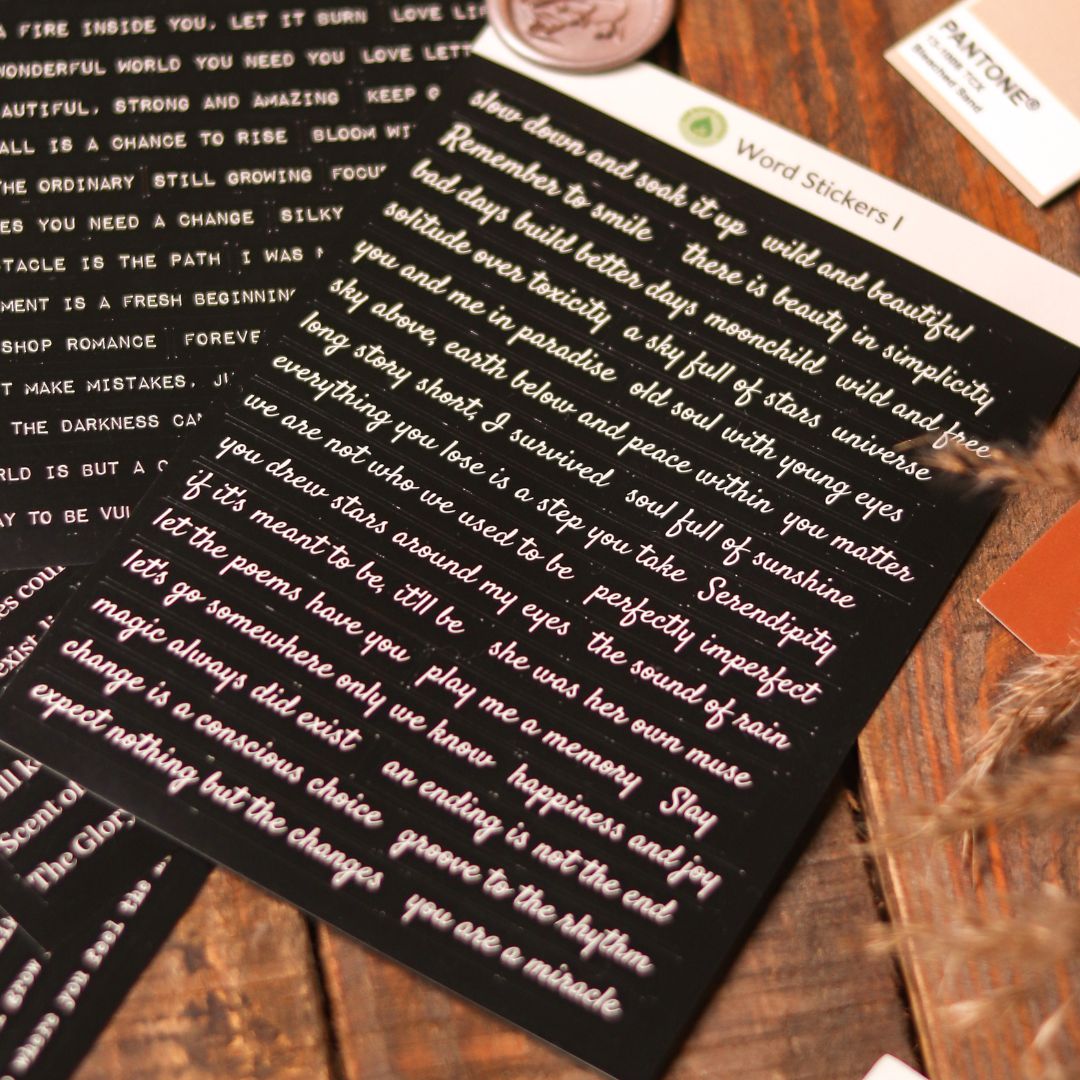 A FIRE INSIDE YOU, LET IT BURN LOVE
WONDERFUL WORLD YOU NEED YOU LOVE
STRONG AND AMAZING KEEP
ALL IS A CHANCE TO RISE BLOOM
THE ORDINARY STILL GROWING
YOU NEED A CHANGE SILKY
IS THE PATH I WAS
IS A FRESH BEGINNING
SHOP ROMANCE
MAKE MISTAKES,
THE DARKNESS
IS BUT A
TO BE
Word Stickers I
slow down and soak it up wild and beautiful
Remember to smile there is beauty in simplicity
bad days build better days moonchild wild and free
solitude over toxicity a sky full of stars universe
you and me in paradise old soul with young eyes
sky above, earth below and peace within you matter
long story short, I survived soul full of sunshine
everything you lose is a step you take Serendipity
we are not who we used to be perfectly imperfect
you drew stars around my eyes the sound of rain
if it's meant to be, it'll be she was her own muse
let the poems have you play me a memory Slay
let's go somewhere only we know happiness and joy
magic always did exist an ending is not the end
change is a conscious choice groove to the rhythm
expect nothing but the changes you are a miracle
PANTONE®
TCX
Bleached Sand
exist
Scent of
The
grow
where you feel the